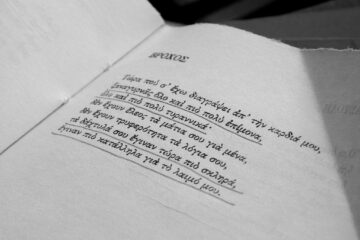 ΒΡΟΧΟΣ
Τώρα πού σ' ἔχω διαγράψει ἀπ' τήν καρδιά μου,
ξαναγυρνᾶς ὅλο καί πιό πολύ ἐπίμονα,
ὅλο καί πιό πολύ τυραννικά.
Δέν ἔχουν ἔλεος τά μάτια σου γιά μένα,
δέν ἔχουν τρυφερότητα τά λόγια σου,
τά δάχτυλά σου ἔγιναν τώρα πιό σκληρά,
ἔγιναν πιό κατάλληλα γιά τό λαιμό μου.